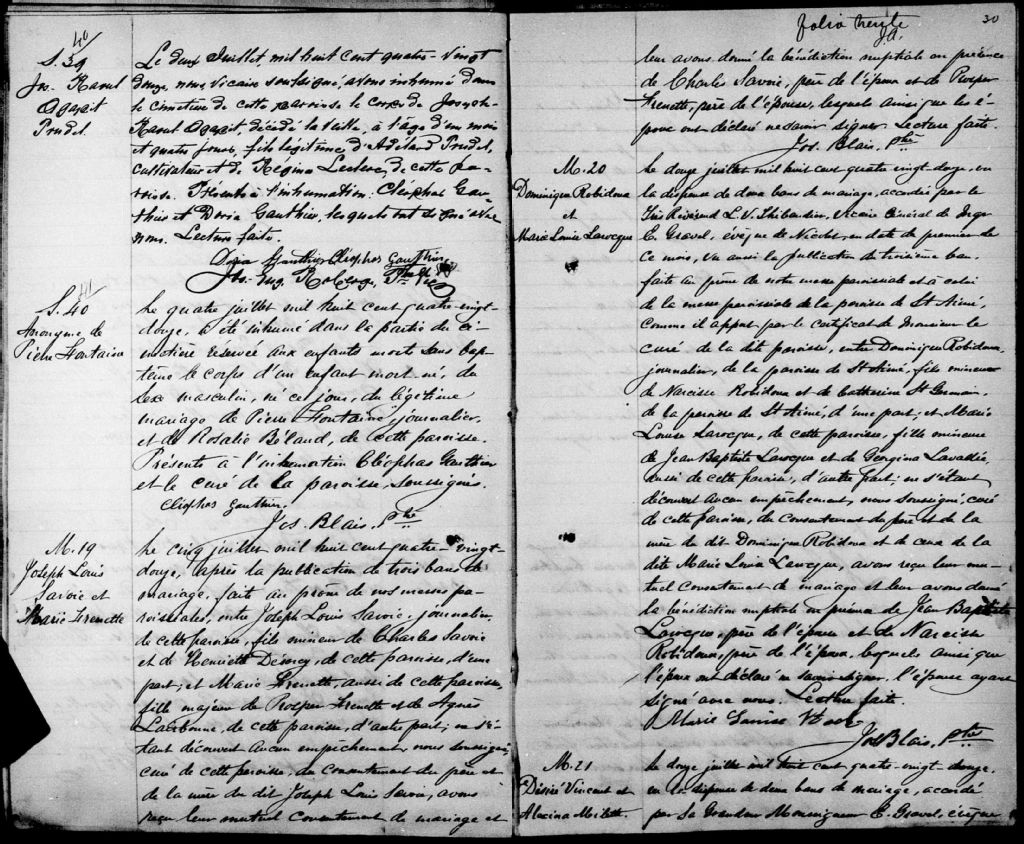 40
S. 39
Jos. Raoul
Agapit
Prudel.
Le deux Juillet, mil huit cent quatre-vingt
douze, nous, vicaire soussigné, avons inhumé dans
le cimetière de cette paroisse le corps de Joseph-
Raoul Agapit, décédé la veille, à l'âge d'un mois
et quatre jours, fils légitime d'Adélard Prudel,
cultivateur et de Régina Leclerc, de cette pa-
roisse. Présents à l'inhumation. Cléophas Gau-
thier et Dora Gauthier, lesquels ont signé avec
nous. Lecture faite.
Dora Gauthier Cléophas Gauthier
41
S. 40
Anonyme de
Pierre Fontaine
Le quatre juillet mil huit cent quatre-vingt-
douze, a été inhumé dans la partie du ci-
metière réservée aux enfants morts sans bap-
tême le corps d'un enfant mort-né, du
sexe masculin, né ce jour, du légitime
mariage de Pierre Fontaine, journalier,
et de Rosalie Béland, de cette paroisse.
Présents à l'inhumation Cléophas Gauthier
et le curé de la paroisse, soussignés.
Cléophas Gauthier.
Jos. Blais, Ptre
M. 19
Joseph Louis
Savoie et
Marie Frenette
Le cinq juillet mil huit cent quatre-vingt-
douze, après la publication de trois bans de
mariage, faite au prône de nos messes pa-
roissiales, entre Joseph Louis Savoie, journalier,
de cette paroisse, fils mineur de Charles Savoie
et de Henriette, de cette paroisse, d'une
part; et Marie Frenette, aussi de cette paroisse,
fille majeure de Prosper Frenette et de Agnès
de cette paroisse, d'autre part; ne s'é-
tant découvert aucun empêchement, nous soussigné,
curé de cette paroisse, du consentement du père et
de la mère du dit Joseph Louis Savoie, avons
reçu leur mutuel consentement de mariage et
folio trente
30
leur avons donné la bénédiction nuptiale en présence
de Charles Savoie, père de l'époux et de Prosper
Frenette, père de l'épouse, lesquels ainsi que les é-
poux ont déclaré ne savoir signer. Lecture faite.
Jos. Blais, Ptre
M. 20
Dominique Robidoux
et
Marie Louise Larocque
Le douze juillet mil huit cent quatre vingt-douze, vu
la dispense de deux bans de mariage, accordée par le
Très Révérend L. V. Thibaudier, vicaire Général de Mgr
E. Gravel, évêque de Nicolet, en date du premier de
ce mois, vu aussi la publication du troisième ban
faite au prône de notre messe paroissiale et à celui
de la messe paroissiale de la paroisse de St Aimé,
comme il appert par le certificat de Monsieur le
curé de la dite paroisse, entre Dominique Robidoux,
journalier, de la paroisse de St Aimé, fils mineur
de Narcisse Robidoux et de Catherine St Germain,
de la paroisse de St Aimé, d'une part; et Marie
Louise Larocque, de cette paroisse, fille mineure
de Jean Baptiste Larocque et de Georgina Lavallée,
aussi de cette paroisse, d'autre part; ne s'étant
découvert aucun empêchement, nous soussigné, curé
de cette paroisse, du consentement du père et de la
mère du dit Dominique Robidoux et de ceux de la
dite Marie Louise Larocque, avons reçu leur mu-
tuel consentement de mariage et leur avons donné
la bénédiction nuptiale en présence de Jean Baptiste
Larocque, père de l'épouse et de Narcisse
Robidoux, père de l'époux, lesquels ainsi que
l'époux ont déclaré ne savoir signer, l'épouse ayant
signé avec nous. Lecture faite.
Marie Louise
Jos Blais, Ptre
M. 21
Désiré Vincent et
Alexina Milette.
Le douze juillet mil huit cent quatre-vingt-douze,
vu la dispense de deux bans de mariage, accordée
par Sa Grandeur Monseigneur E. Gravel, évêque